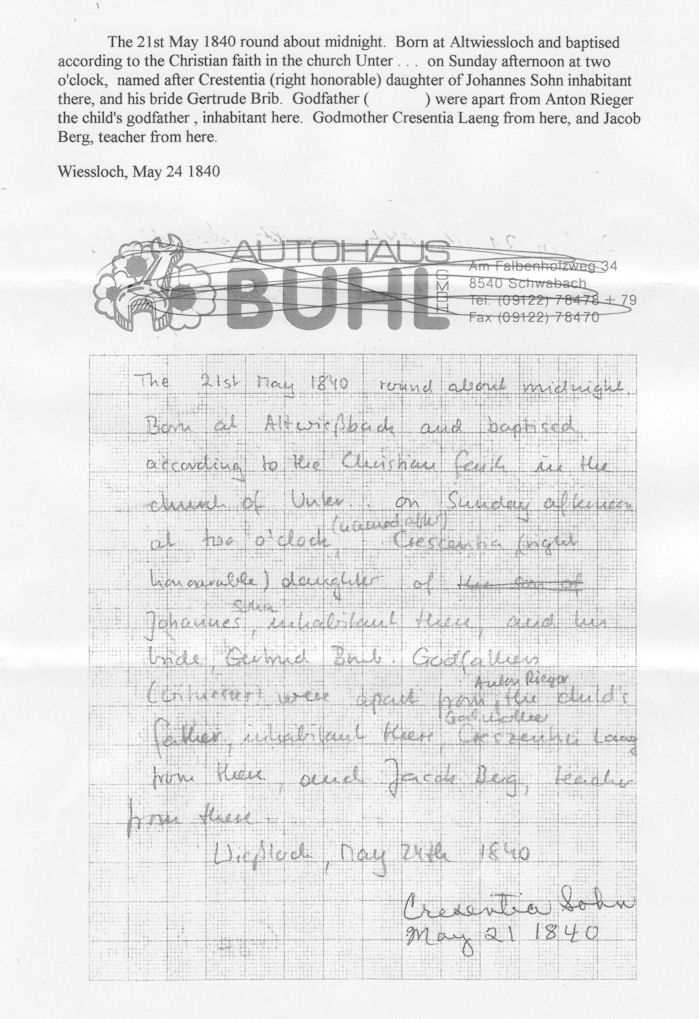 The 21st May 1840 round about midnight. Born at Altwiessloch and baptised
according to the Christian faith in the church Unter . . . on Sunday afternoon at two
o'clock, named after Crestentia (right honorable) daughter of Johannes Sohn inhabitant
there, and his bride Gertrude Brib. Godfather ( ) were apart from Anton Rieger
the child's godfather , inhabitant here. Godmother Cresentia Laeng from here, and Jacob
Berg, teacher from here.
Wiessloch, May 24 1840
AUTOHAUS
BUHL
GMBH
Am Falbenholzweg 34
8540 Schwabach
Tel. (09122) 78478 + 79
Fax (09122) 78470
The 21st May 1840 round about midnight.
Born at Altwießbach and baptised
according to the Christian faith in the
church of Unter... on Sunday afternoon
(named after)
at two o'clock, Crescentia (right
honourable) daughter of the son of
Sohn
Johannes, inhabitant there, and his
bride, Gertrud Brib. Godfathers
Anton Rieger
(witnesses) were apart from the child's
Godmother
father, inhabitant there, Creszentia Laeng
from there, and Jacob Berg, teacher
from there.
Wießloch, May 24th 1840
Cresentia Sohn
May 21 1840